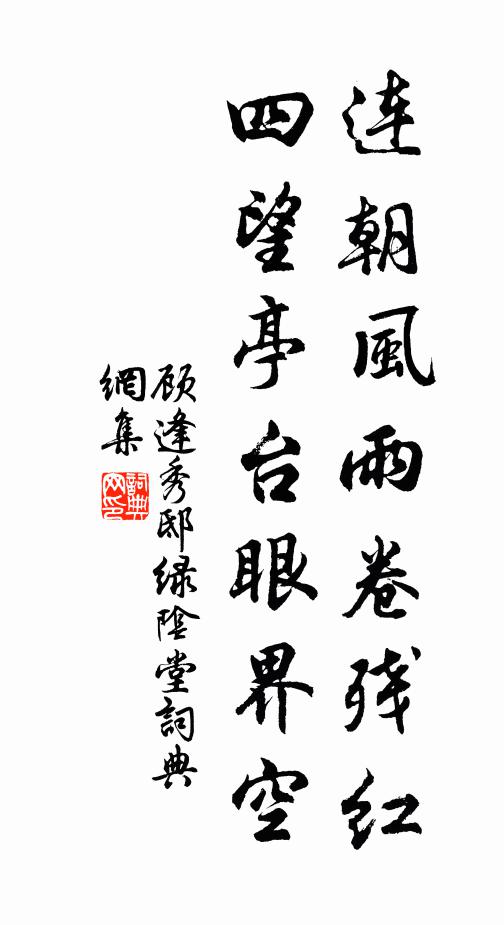 連朝風雨卷残红
四望亭台眼界空
顾逢秀邸緑陰堂詞典
網集
詞典
网印